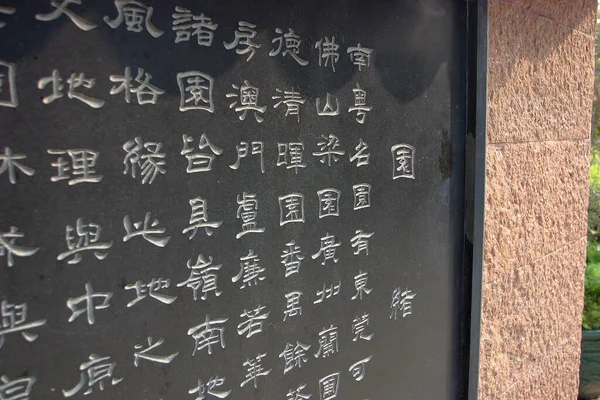 園結
南粤名園有東莞可
佛山梁園廣州蘭圃
德清暉園番禺餘蔭
房澳門盧廉若華
諸園皆具嶺南地
風格緣此地之
文地理與中原
木與